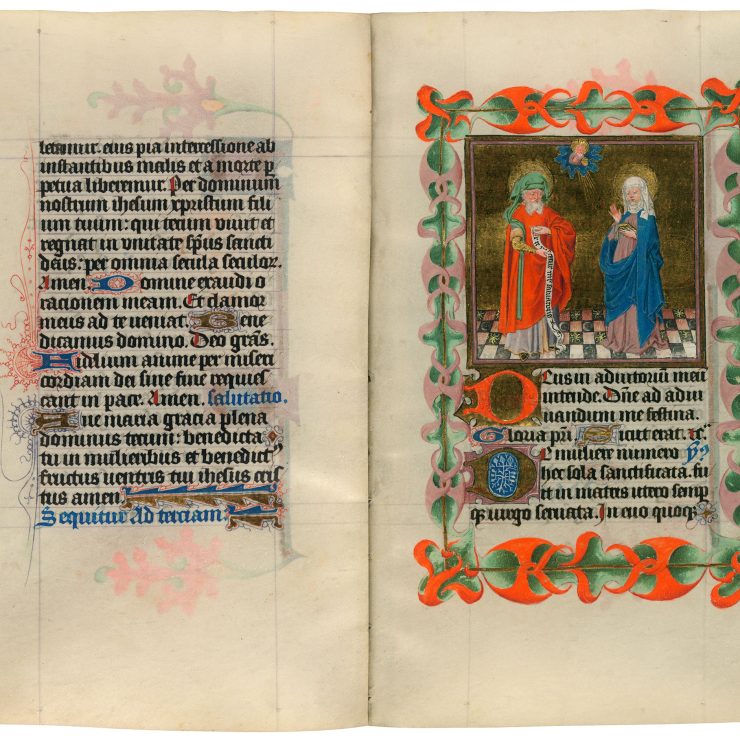 letmur. eius pia intercessione ab
instantibus malis et a morte p
petua liberemur. Per dominum
nostrum ihesum xpristum fili
um tuum: qui tecum viuit et
regnat in vnitate sp̄us sancti
deus: per omnia secula seculor.
Amen. Domine exaudi o
rationem meam. Et clamor
meus ad te veniat. Bene
dicamus domino. Deo grās.
Fidelium anime per miseri
cordiam dei sine fine requies
cant in pace. Amen. salutatio.
Aue maria gracia plena
dominus tecum: benedicta
tu in mulieribus et benedictꝰ
fructus ventris tui ihesus cris
tus amen.
Sequitur ad terciam.
Deus in adiutoriū meū
intende. Dn̄e ad adiu
uandum me festina.
Gloria pr̄i. Sicut erat. ꝛc̄.
E muliere numero
hec sola sanctificata. fu
it in matris vtero semp
qꝫ virgo seruata. In euo quoqꝫ